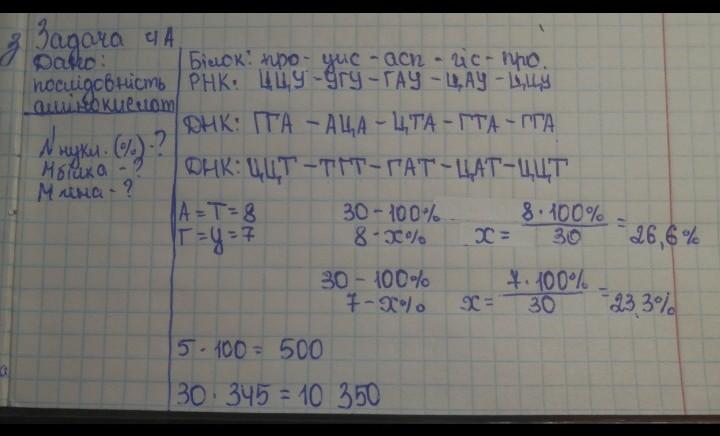 з Задача 4А
Дано:
послідовність
амінокислот
N нукл. (%) - ?
М білка - ?
М гена - ?
Білок: про - цис - асп - гіс - про.
РНК: ЦЦУ - УГУ - ГАУ - ЦАУ - ЦЦУ
ДНК: ГГА - АЦА - ЦТА - ГТА - ГГА
ДНК: ЦЦТ - ТГТ - ГАТ - ЦАТ - ЦЦТ
А = Т = 8
Г = Ц = 7
30 - 100%
8 - х%
х = 8 · 100% / 30 = 26,6%
30 - 100%
7 - х%
х = 7 · 100% / 30 = 23,3%
5 · 100 = 500
30 · 345 = 10 350